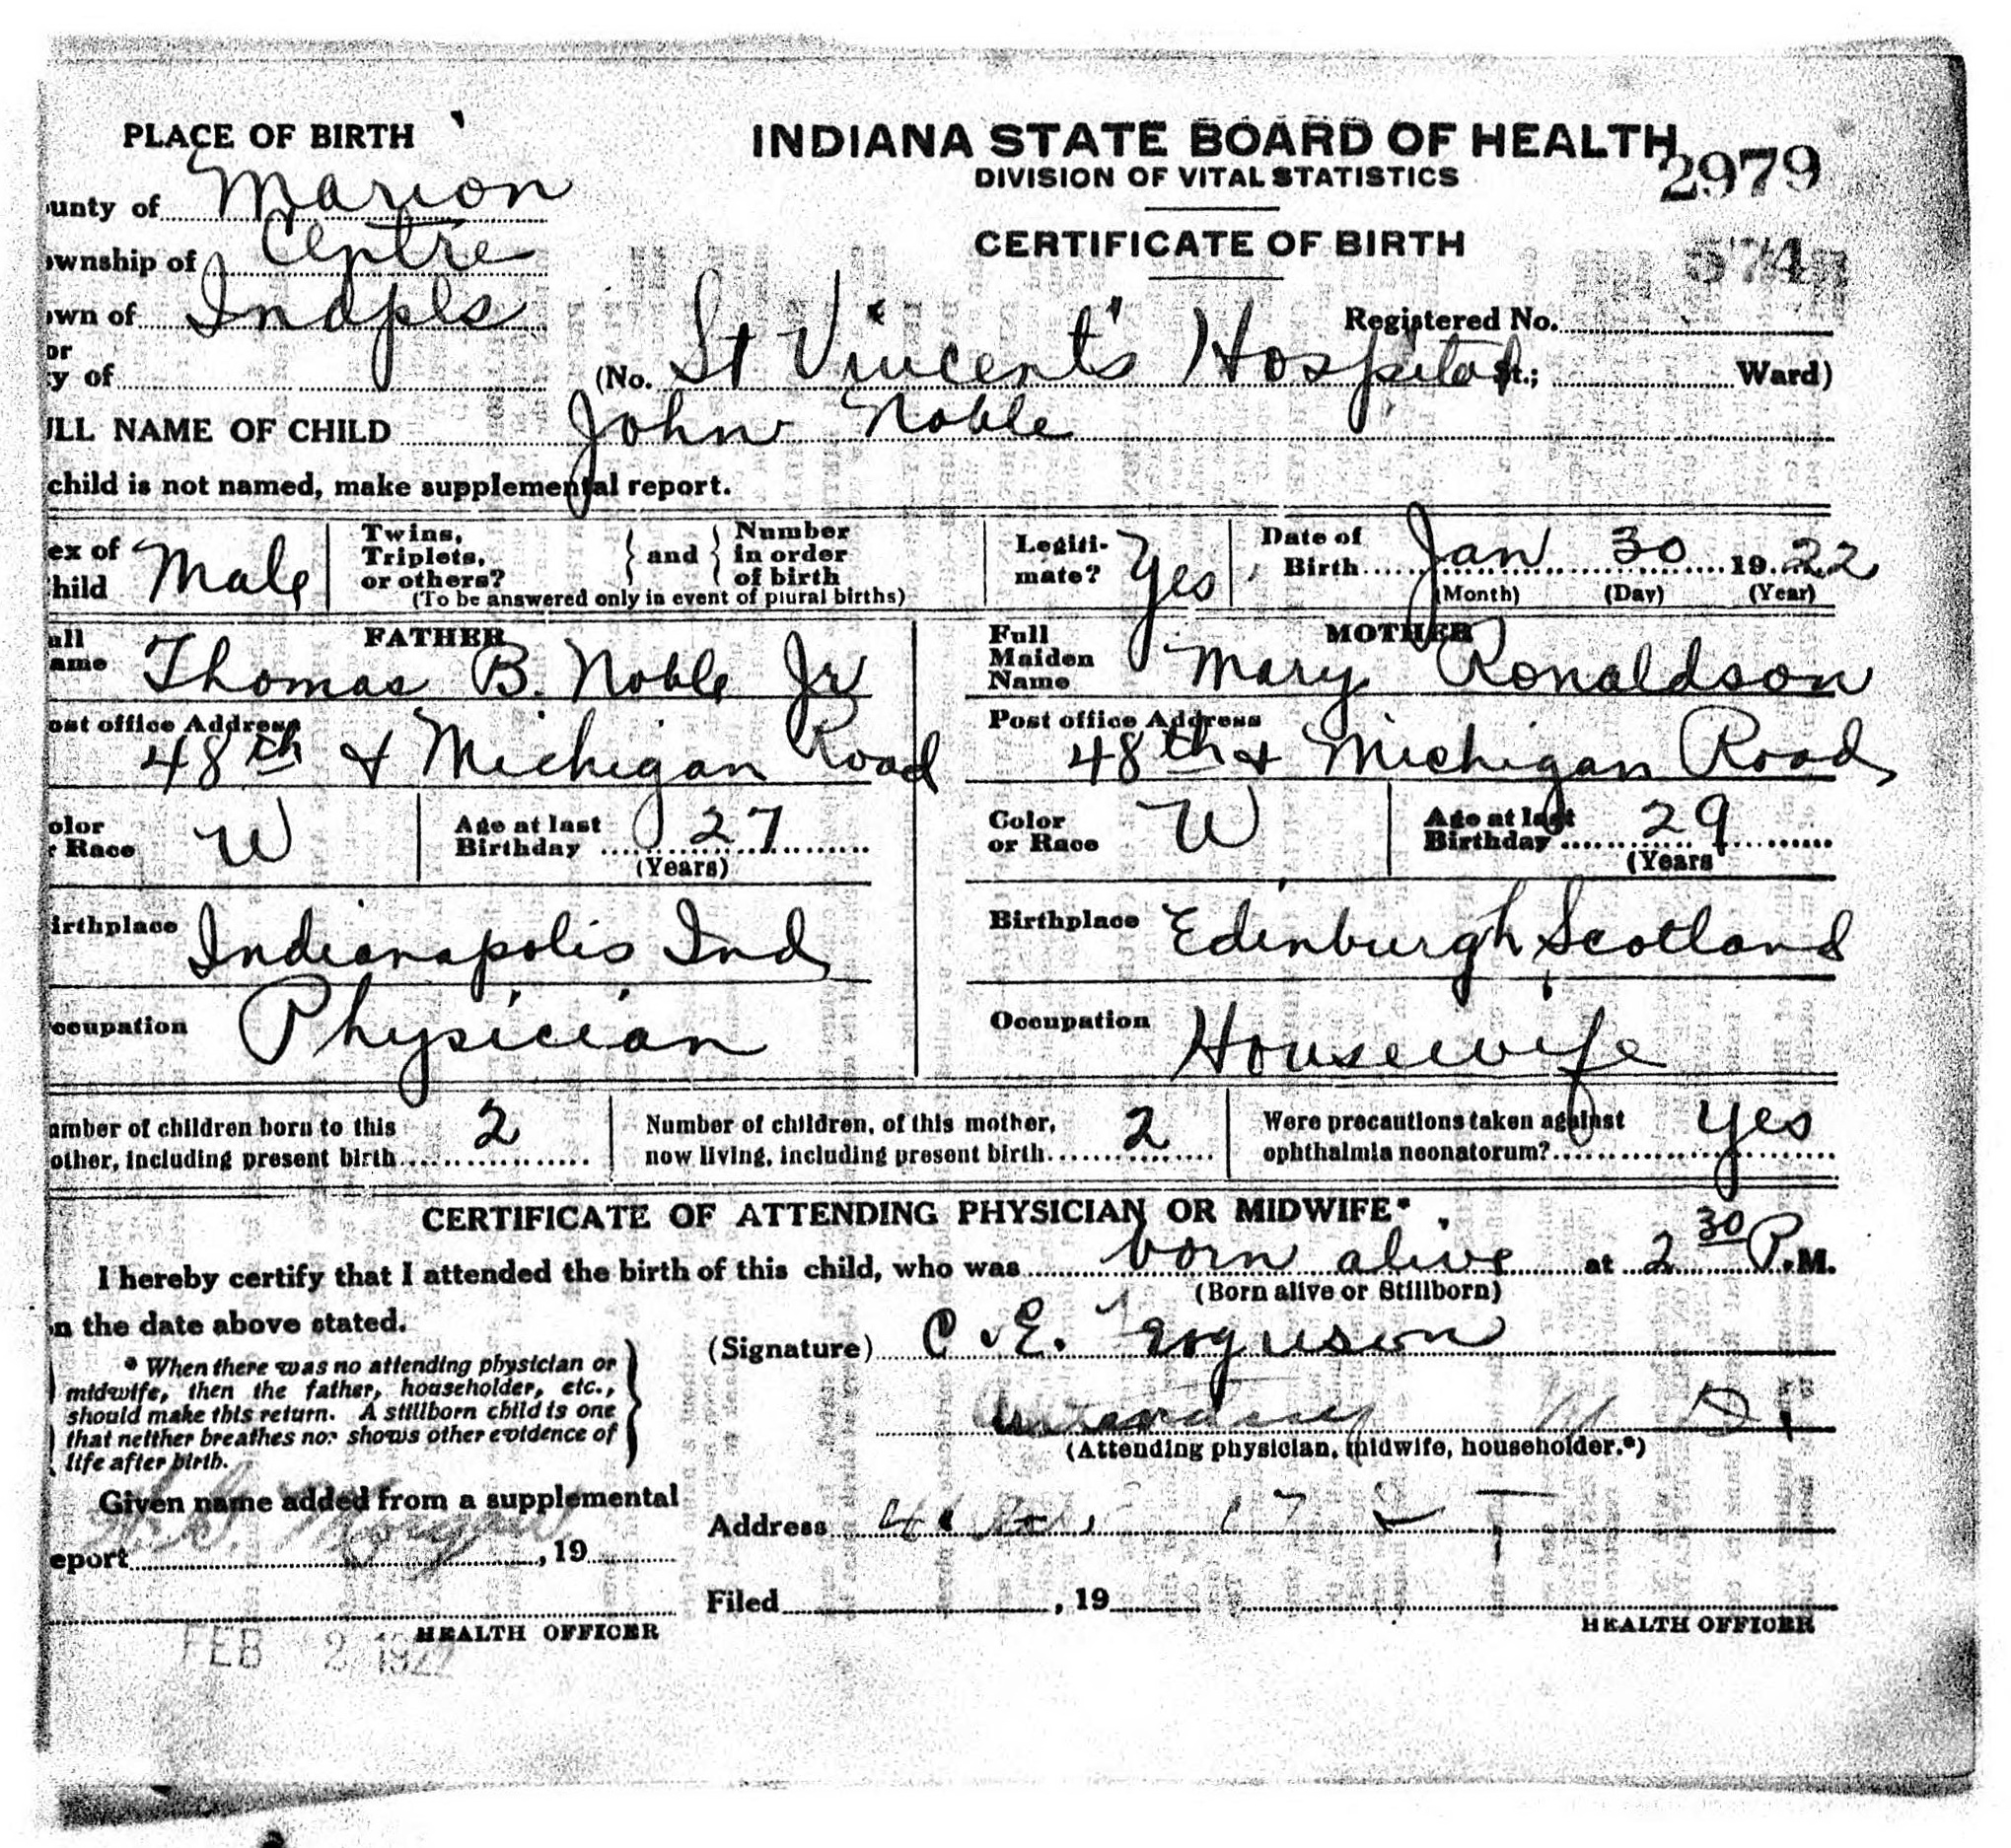 PLACE OF BIRTH
INDIANA STATE BOARD OF HEALTH
2979
DIVISION OF VITAL STATISTICS
unty of Marion
CERTIFICATE OF BIRTH
574
ownship of Centre
own of Indpls
Registered No.
or
y of
(No. St Vincent's Hospital St.; Ward)
ULL NAME OF CHILD John Noble
child is not named, make supplemental report.
ex of hild Male
Twins, Triplets, or others? } and { Number in order of birth
(To be answered only in event of plural births)
Legiti-mate? Yes
Date of Birth Jan 30 1922
(Month) (Day) (Year)
FATHER
ull ame Thomas B. Noble Jr
MOTHER
Full Maiden Name Mary Ronaldson
ost office Address 48th & Michigan Road
Post office Address 48th & Michigan Road
olor r Race W
Age at last Birthday 27
(Years)
Color or Race W
Age at last Birthday 29
(Years
irthplace Indianapolis Ind
Birthplace Edinburgh Scotland
ccupation Physician
Occupation Housewife
umber of children born to this
other, including present birth 2
Number of children, of this mother,
now living, including present birth 2
Were precautions taken against
ophthalmia neonatorum? yes
CERTIFICATE OF ATTENDING PHYSICIAN OR MIDWIFE*
I hereby certify that I attended the birth of this child, who was born alive at 2 30 P.M.
(Born alive or Stillborn)
on the date above stated.
(Signature) C. E. Ferguson
* When there was no attending physician or
midwife, then the father, householder, etc.,
should make this return. A stillborn child is one
that neither breathes nor shows other evidence of
life after birth.
Attending M D
(Attending physician, midwife, householder.*)
Given name added from a supplemental
eport , 19
Address
Filed , 19
HEALTH OFFICER
HEALTH OFFICER
FEB 2 1922